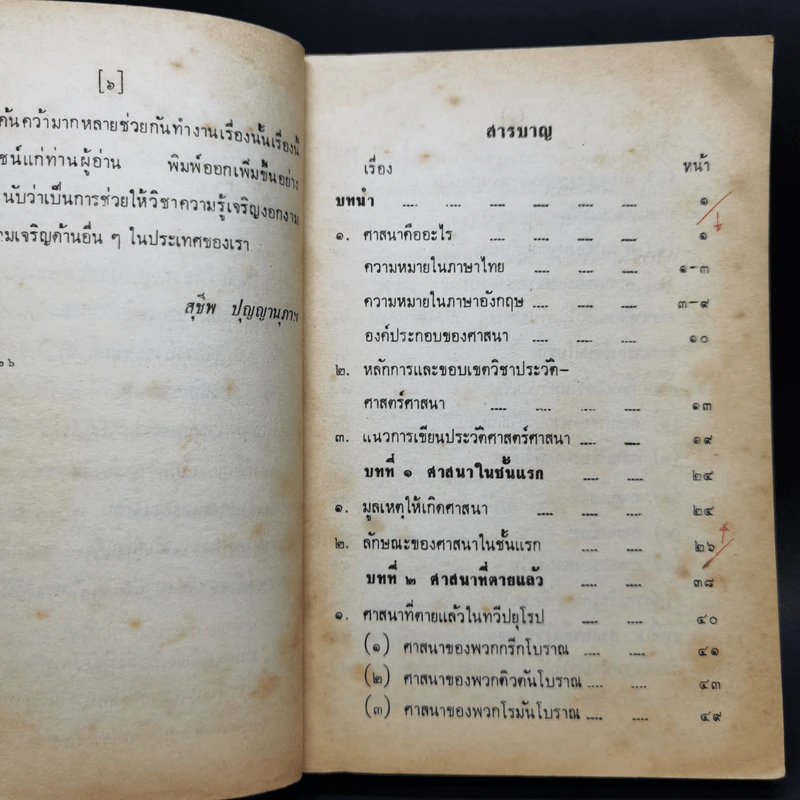 [๖]
ค้นคว้ามากหลายช่วยกันทำงานเรื่องนั้นเรื่องนี้
ชน์แก่ท่านผู้อ่าน พิมพ์ออกเพิ่มขึ้นอย่าง
นับว่าเป็นการช่วยให้วิชาความรู้เจริญงอกงาม
มเจริญด้านอื่น ๆ ในประเทศของเรา
สุชีพ ปุญญานุภาพ
๒๖
สารบาญ
เรื่อง หน้า
บทนำ .... .... .... .... .... ๑
๑. ศาสนาคืออะไร .... .... .... .... ๑
ความหมายในภาษาไทย .... .... .... ๑-๓
ความหมายในภาษาอังกฤษ .... .... .... ๓-๙
องค์ประกอบของศาสนา .... .... .... ๑๐
๒. หลักการและขอบเขตวิชาประวัติ-
ศาสตร์ศาสนา .... .... .... .... ๑๓
๓. แนวการเขียนประวัติศาสตร์ศาสนา .... .... ๑๙
บทที่ ๑ ศาสนาในชั้นแรก .... .... ๒๔
๑. มูลเหตุให้เกิดศาสนา .... .... .... ๒๔
๒. ลักษณะของศาสนาในชั้นแรก .... .... ๒๖
บทที่ ๒ ศาสนาที่ตายแล้ว .... .... ๓๘
๑. ศาสนาที่ตายแล้วในทวีปยุโรป .... .... ๔๐
(๑) ศาสนาของพวกกรีกโบราณ .... .... ๔๑
(๒) ศาสนาของพวกติวตันโบราณ .... .... ๔๓
(๓) ศาสนาของพวกโรมันโบราณ .... .... ๔๙